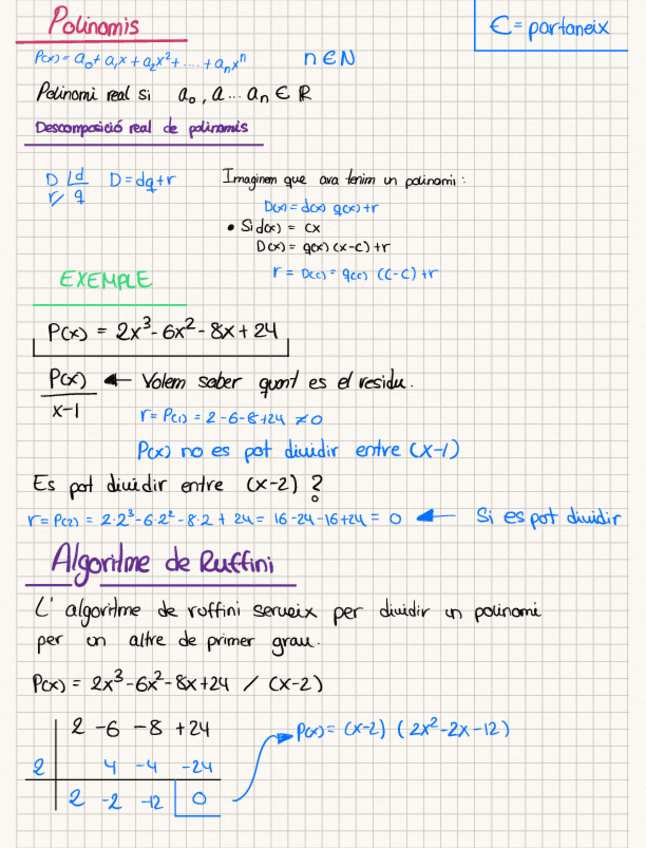 Polinomis
∈ = partaneix
P(x) = a₀ + a₁x + a₂x² + .... + aₙxⁿ n ∈ N
Polinomi real si a₀, a ... aₙ ∈ ℝ
Descomposició real de polinomis
D | d D = dq + r
r/ q
Imaginem que ara tenim un polinomi :
D(x) = d(x) q(x) + r
• Si d(x) = cx
D(x) = q(x) (x-c) + r
r = D(c) = q(c) (c-c) + r
EXEMPLE
P(x) = 2x³ - 6x² - 8x + 24
P(x) ← Volem saber quant es el residu.
x-1
r = P(1) = 2 - 6 - 8 + 24 ≠ 0
P(x) no es pot dividir entre (x-1)
Es pot dividir entre (x-2) ?
r = P(2) = 2·2³ - 6·2² - 8·2 + 24 = 16 - 24 - 16 + 24 = 0 ← Si es pot dividir
Algoritme de Ruffini
L' algoritme de ruffini serveix per dividir un polinomi
per un altre de primer grau.
P(x) = 2x³ - 6x² - 8x + 24 / (x-2)
2 -6 -8 +24
2 4 -4 -24
2 -2 -12 0
P(x) = (x-2) (2x² - 2x - 12)